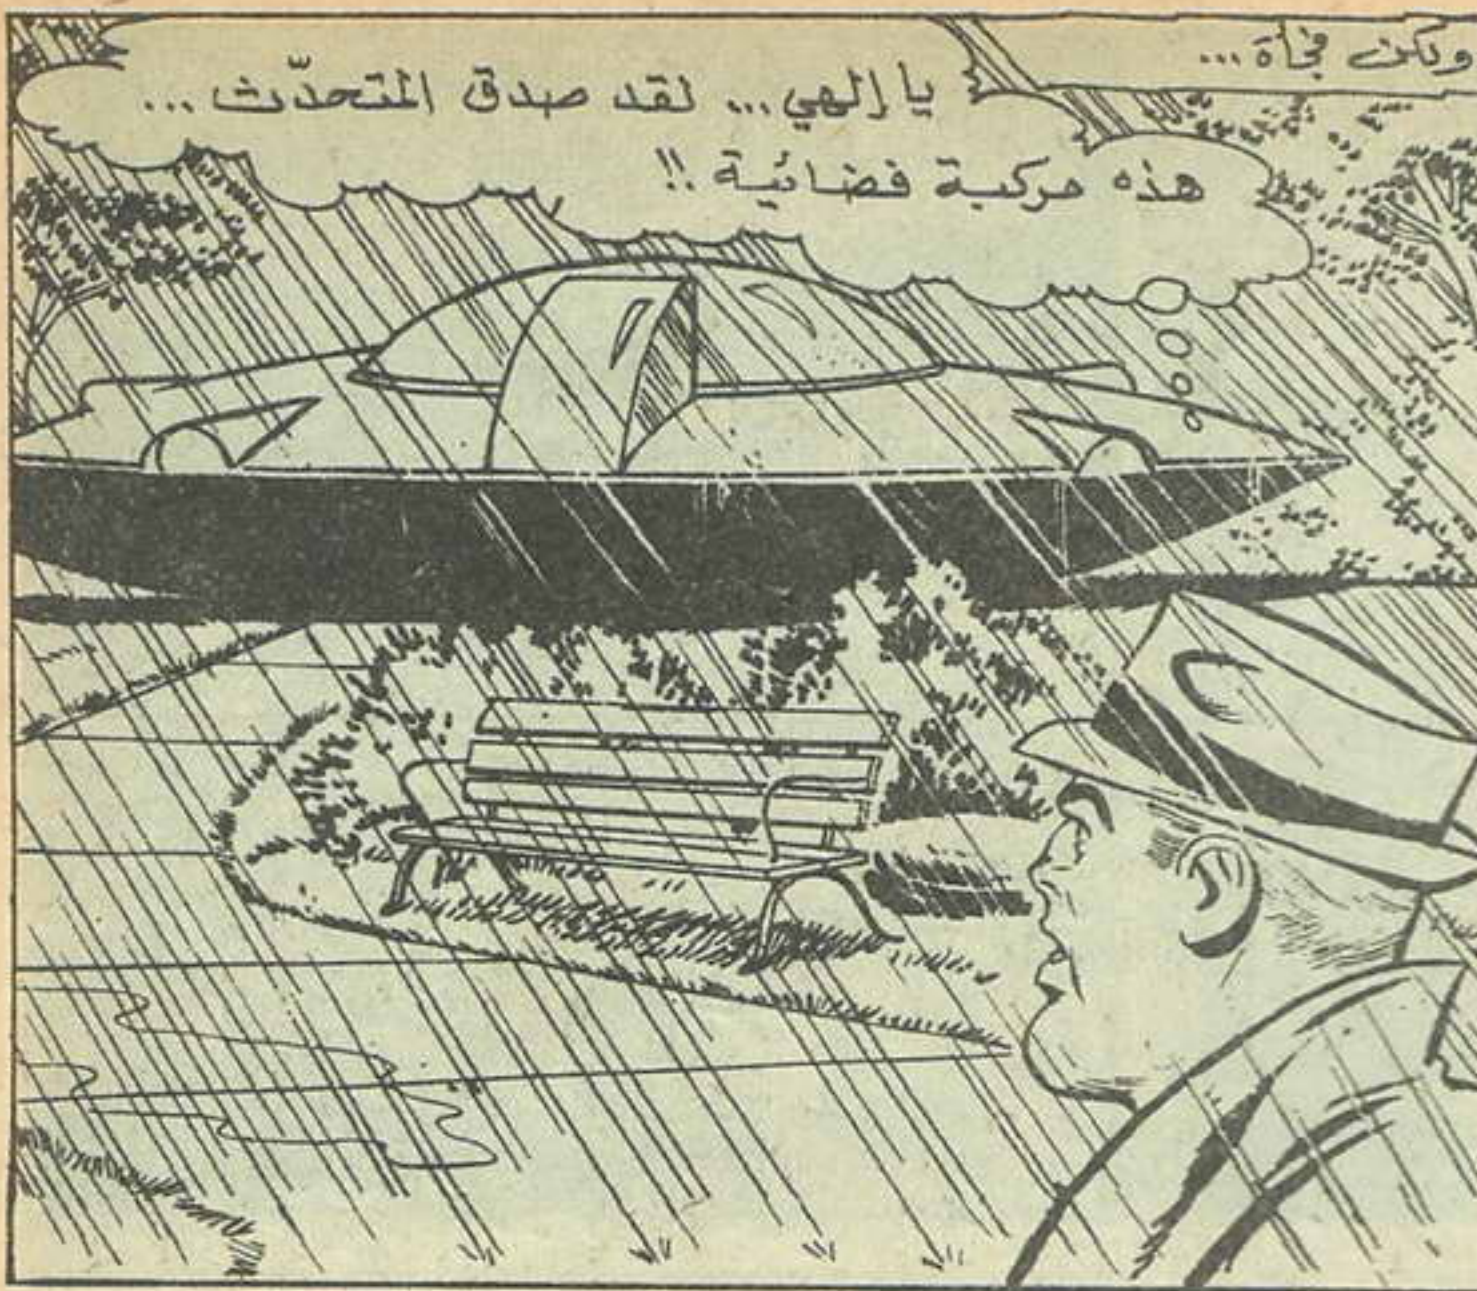 ولكن فجأة...
يا إلهي... لقد صدق المتحدّث...
هذه مركبة فضائية !!